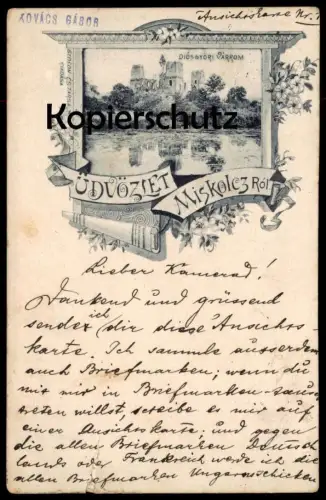 KOVÁCS GÁBOR
Ansichtskarte Nr. 1
DIÓSGYŐRI VÁRROM
Kopierschutz
ÜDVÖZLET
MISKOLCZRÓL
Lieber Kamerad!
Dankend und grüssend
sende ich dir diese Ansichts-
karte. Ich sammle ausserdem
auch Briefmarken; wenn du
mit mir in Briefmarken-taus
treten willst, schreibe es mir auf
einer Ansichtskarte und gegen
die alten Briefmarken Deutsch
lands oder Frankreich werde ich die
alten Briefmarken Ungarns schicken